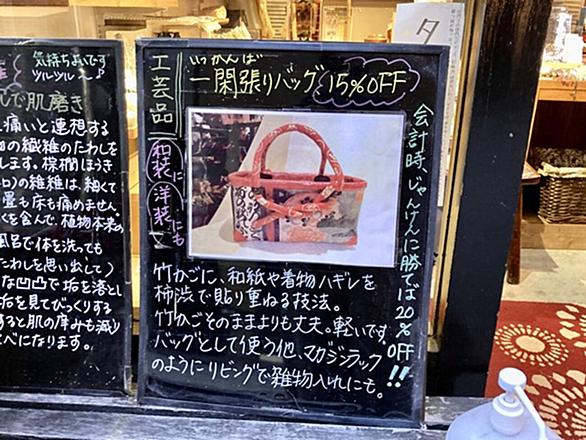 気持ちよいです
ツルツル〜♪
しで肌磨き
痛いと連想する
の繊維のたわしを
します。棕櫚ほうき
ロ)の繊維は、細くて
畳も床も痛めません。
くを含んで、植物本来の
風呂で体を洗っても
たわしを思い出して)
な凹凸で垢を落とし
垢を見てびっくりする
すると肌の厚みも減り
べになります。
工芸品
和装に
洋装にも
いっかんば
一閑張りバッグ 15%OFF
会計時、じゃんけんに勝てば20%OFF!!
竹かごに、和紙や着物ハギレを
柿渋で貼り重ねる技法。
竹かごそのままよりも丈夫。軽いです。
バッグとして使う他、マガジンラック
のようにリビングで雑物入れにも。
タ